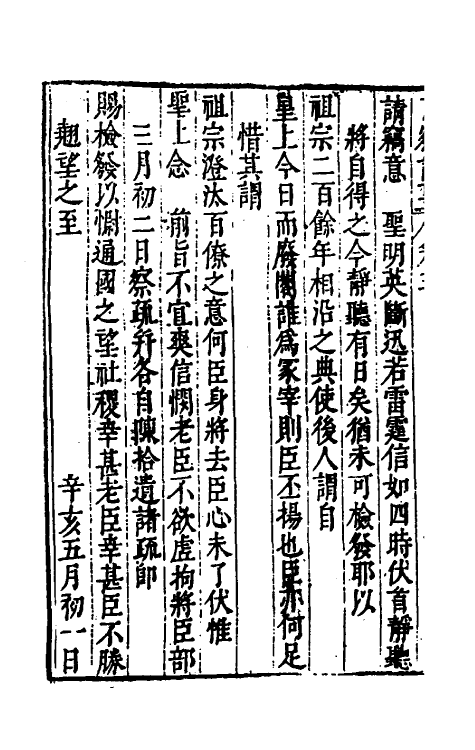 請竊意　聖明英斷迅若雷霆信如四時伏首靜聽
將自得之今靜聽有日矣猶未可檢發耶以
祖宗二百餘年相沿之典使後人謂自
皇上今日而廢閣誰爲冢宰則臣丕揚也臣亦何足
惜其謂
祖宗澄汰百僚之意何臣身將去臣心未了伏惟
聖上念　前旨不宜爽信憫老臣不欲虛拘將臣部
三月初二日察疏并各自陳拾遺諸疏即
賜檢發以慰通國之望社稷幸甚老臣幸甚臣不勝
翹望之至　辛亥五月初一日